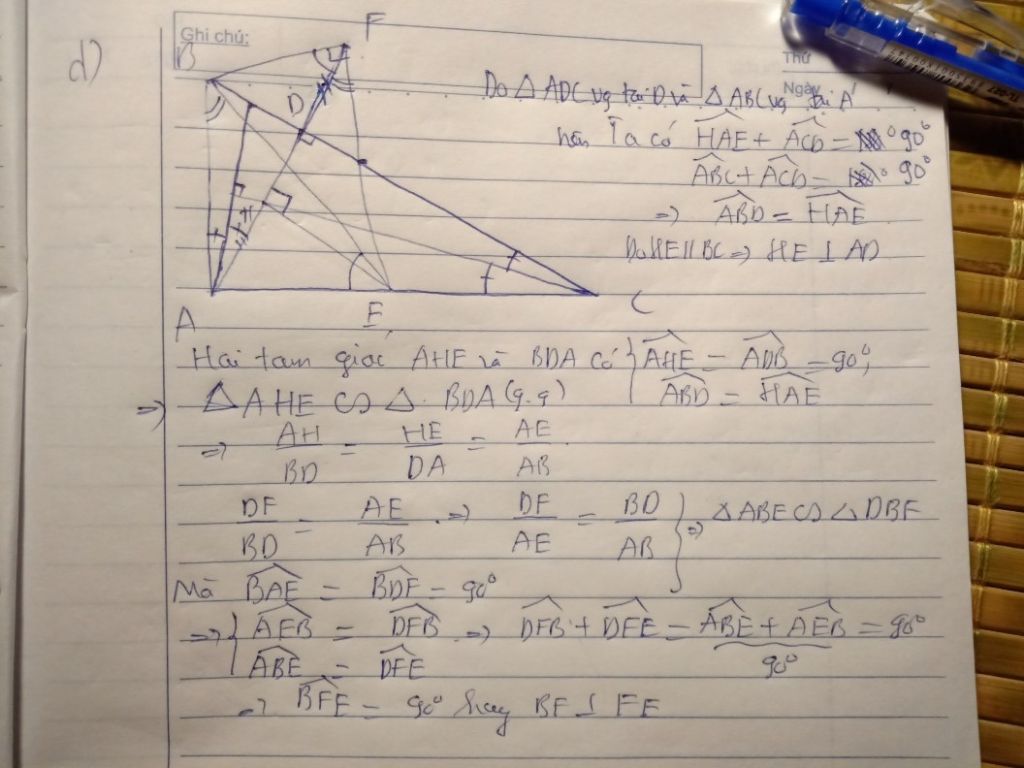 d)
Ghi chú:
Thứ
Ngày
F
B
D
H
A
E
C
Do △ ADC vg tại D và △ ABC vg tại A
nên Ta có HAE + ACD = 90°
ABC + ACD = 90°
=> ABD = HAE
Do HE // BC => HE ⊥ AD
Hai tam giác AHE và BDA có { AHE = ADB = 90°,
ABD = HAE
=> △ AHE ∽ △ BDA (g.g)
=> AH/BD = HE/DA = AE/AB
DF/BD = AE/AB => DF/AE = BD/AB } => △ ABE ∽ △ DBF
Mà BAE = BDF = 90°
=> { AEB = DFB => DFB + DFE = ABE + AEB = 90°
ABE = DFE
90°
=> BFE = 90° hay BF ⊥ FE